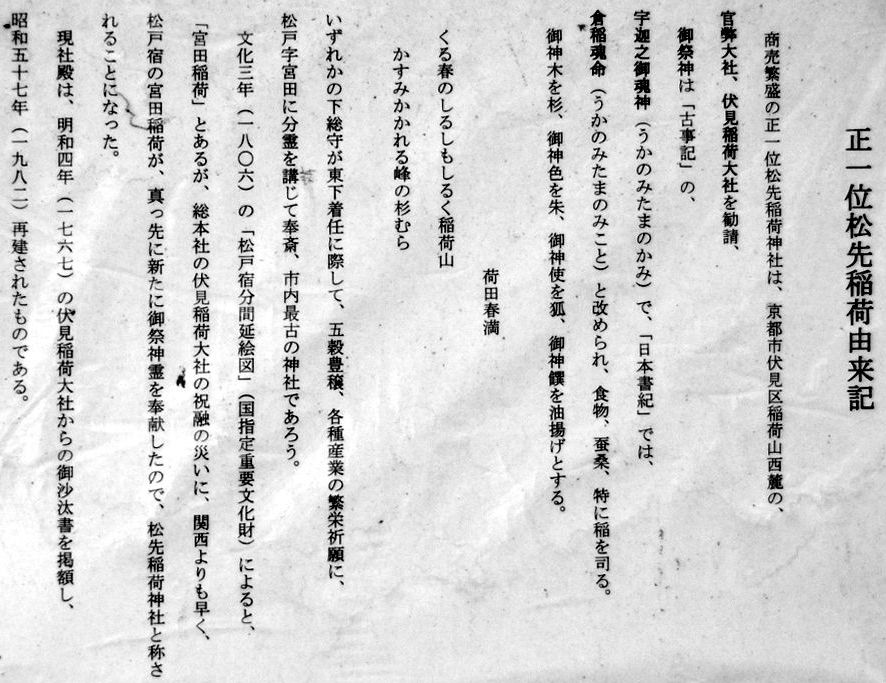 正一位松先稲荷由来記
商売繁盛の正一位松先稲荷神社は、京都市伏見区稲荷山西麓の、
官弊大社、伏見稲荷大社を勧請、
御祭神は「古事記」の、
宇迦之御魂神（うかのみたまのかみ）で、「日本書紀」では、
倉稲魂命（うかのみたまのみこと）と改められ、食物、蚕桑、特に稲を司る。
御神木を杉、御神色を朱、御神使を狐、御神饌を油揚げとする。
荷田春満
くる春のしるしもしるく稲荷山
かすみかかれる峰の杉むら
いずれかの下総守が東下着任に際して、五穀豊穣、各種産業の繁栄祈願に、
松戸字宮田に分霊を講じて奉斎、市内最古の神社であろう。
文化三年（一八〇六）の「松戸宿分間延絵図」（国指定重要文化財）によると、
「宮田稲荷」とあるが、総本社の伏見稲荷大社の祝融の災いに、関西よりも早く、
松戸宿の宮田稲荷が、真っ先に新たに御祭神霊を奉献したので、松先稲荷神社と称さ
れることになった。
現社殿は、明和四年（一七六七）の伏見稲荷大社からの御沙汰書を掲額し、
昭和五十七年（一九八二）再建されたものである。